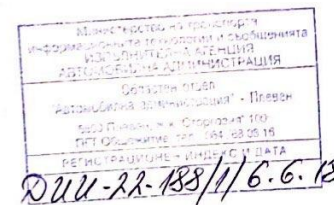 Министерство на транспорта
информационните технологии и съобщенията
ИЗПЪЛНИТЕЛНА АГЕНЦИЯ
АВТОМОБИЛНА АДМИНИСТРАЦИЯ
Областен отдел
"Автомобилна администрация" - Плевен
5800 Плевен, ж.к. "Сторгозия" 100
ПГТ Общежитие тел. 064
РЕГИСТРАЦИОНЕН ИНДЕКС И ДАТА
/1/6.6.18